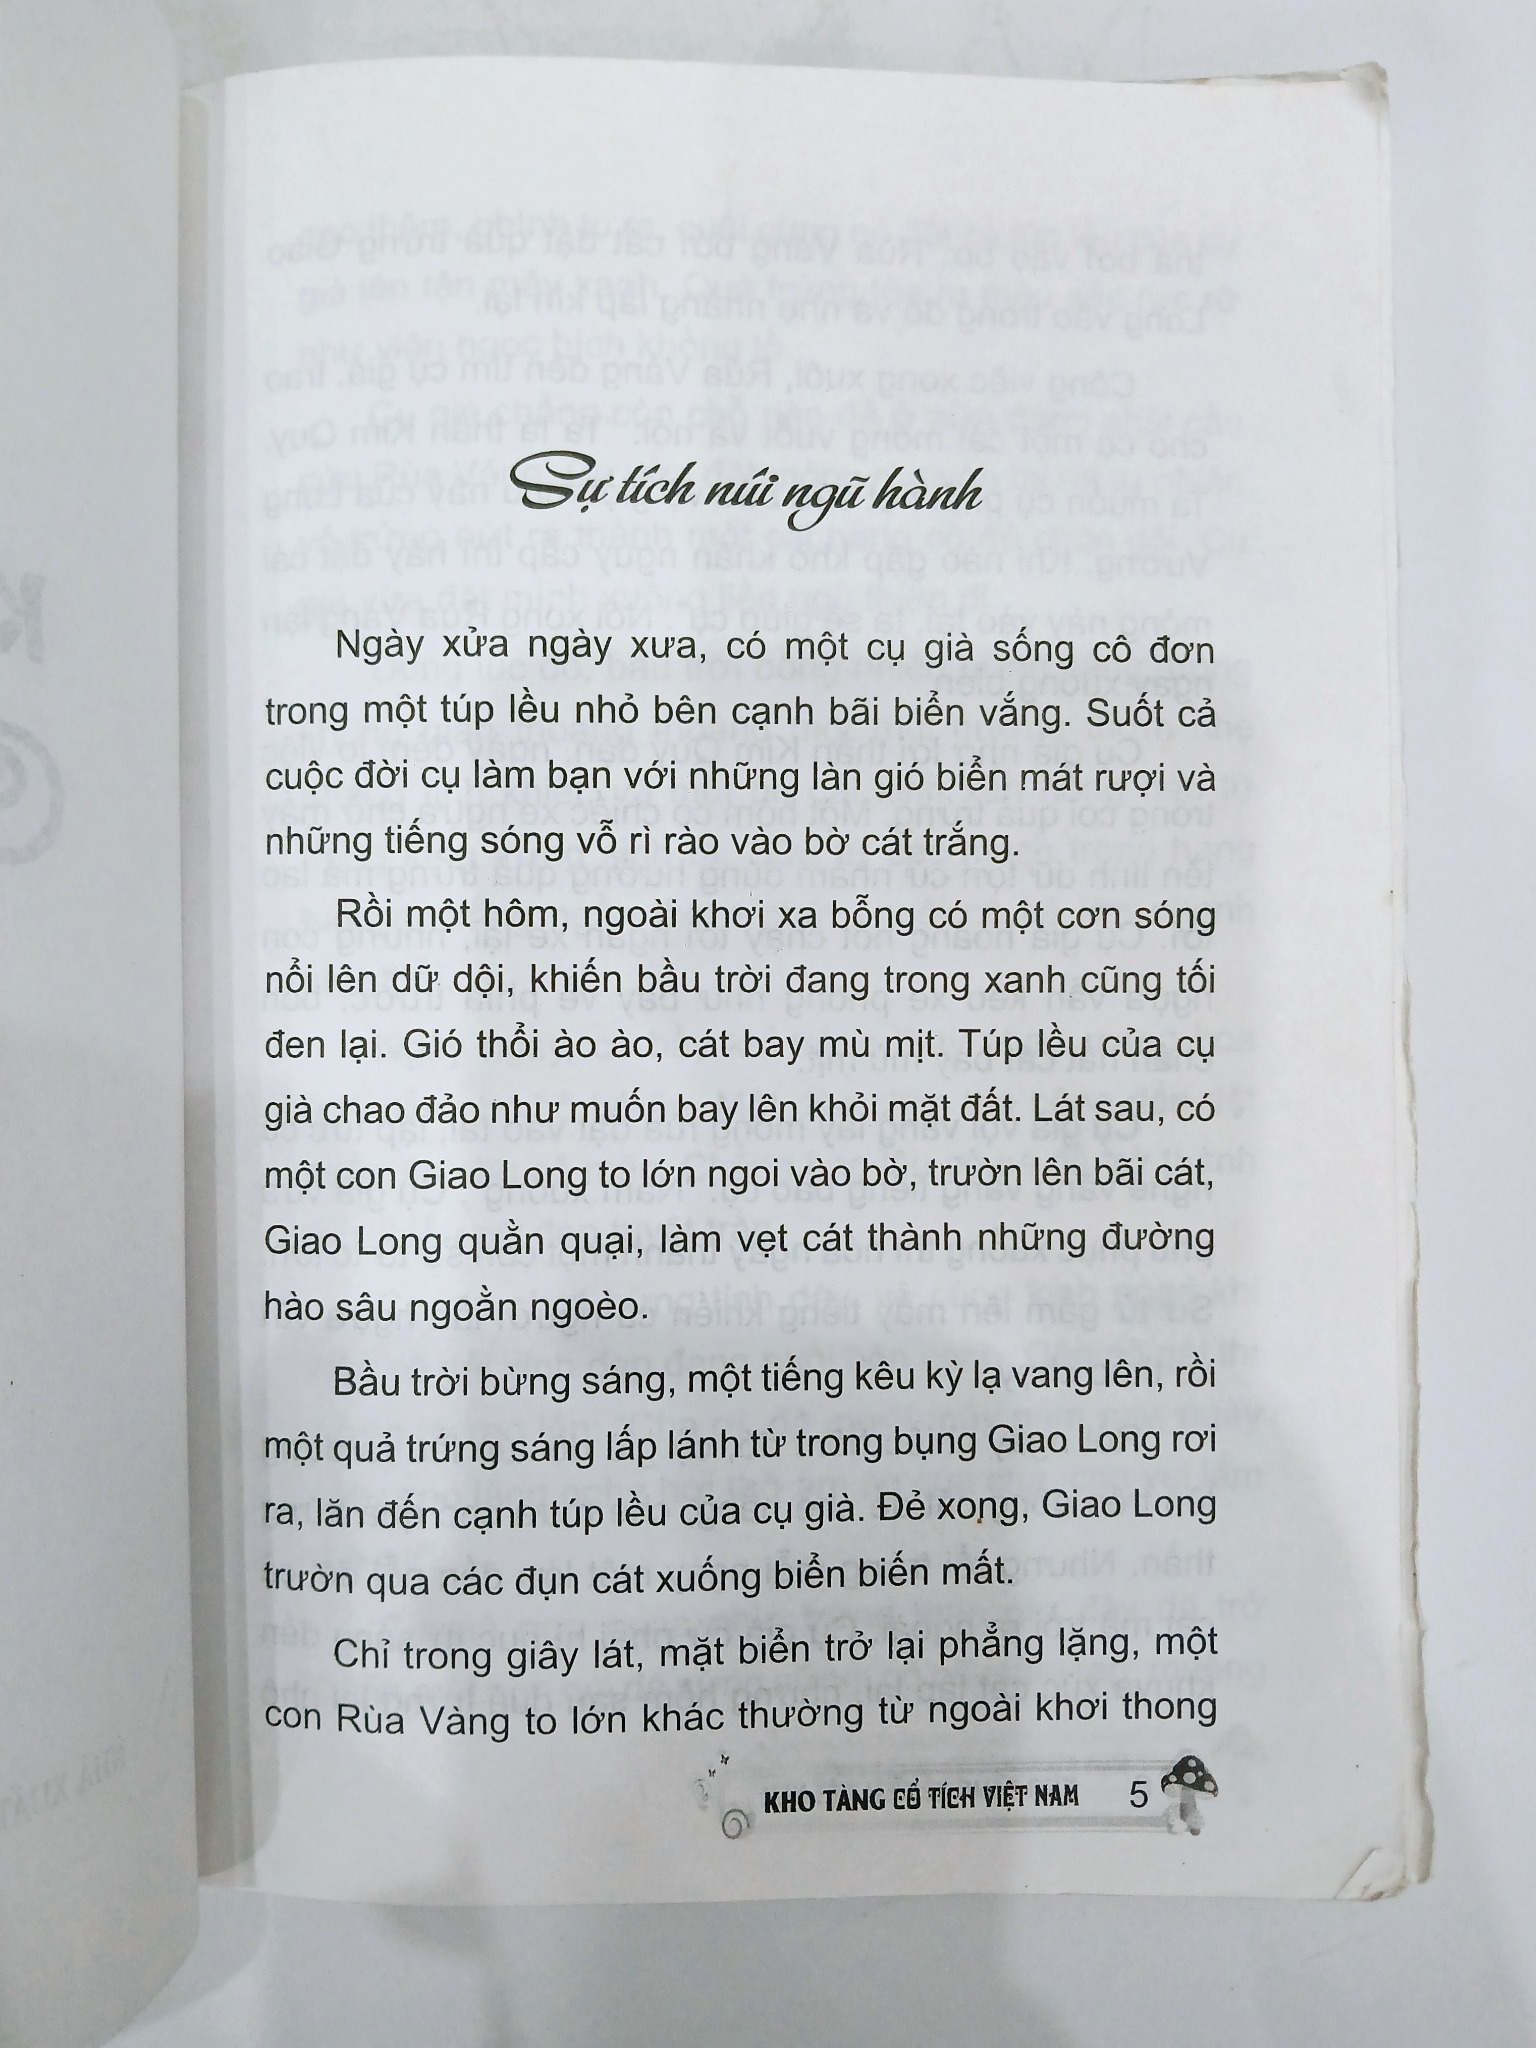 Sự tích núi ngũ hành
Ngày xửa ngày xưa, có một cụ già sống cô đơn
trong một túp lều nhỏ bên cạnh bãi biển vắng. Suốt cả
cuộc đời cụ làm bạn với những làn gió biển mát rượi và
những tiếng sóng vỗ rì rào vào bờ cát trắng.
Rồi một hôm, ngoài khơi xa bỗng có một cơn sóng
nổi lên dữ dội, khiến bầu trời đang trong xanh cũng tối
đen lại. Gió thổi ào ào, cát bay mù mịt. Túp lều của cụ
già chao đảo như muốn bay lên khỏi mặt đất. Lát sau, có
một con Giao Long to lớn ngoi vào bờ, trườn lên bãi cát,
Giao Long quằn quại, làm vẹt cát thành những đường
hào sâu ngoằn ngoèo.
Bầu trời bừng sáng, một tiếng kêu kỳ lạ vang lên, rồi
một quả trứng sáng lấp lánh từ trong bụng Giao Long rơi
ra, lăn đến cạnh túp lều của cụ già. Đẻ xong, Giao Long
trườn qua các đụn cát xuống biển biến mất.
Chỉ trong giây lát, mặt biển trở lại phẳng lặng, một
con Rùa Vàng to lớn khác thường từ ngoài khơi thong
KHO TÀNG CỔ TÍCH VIỆT NAM 5